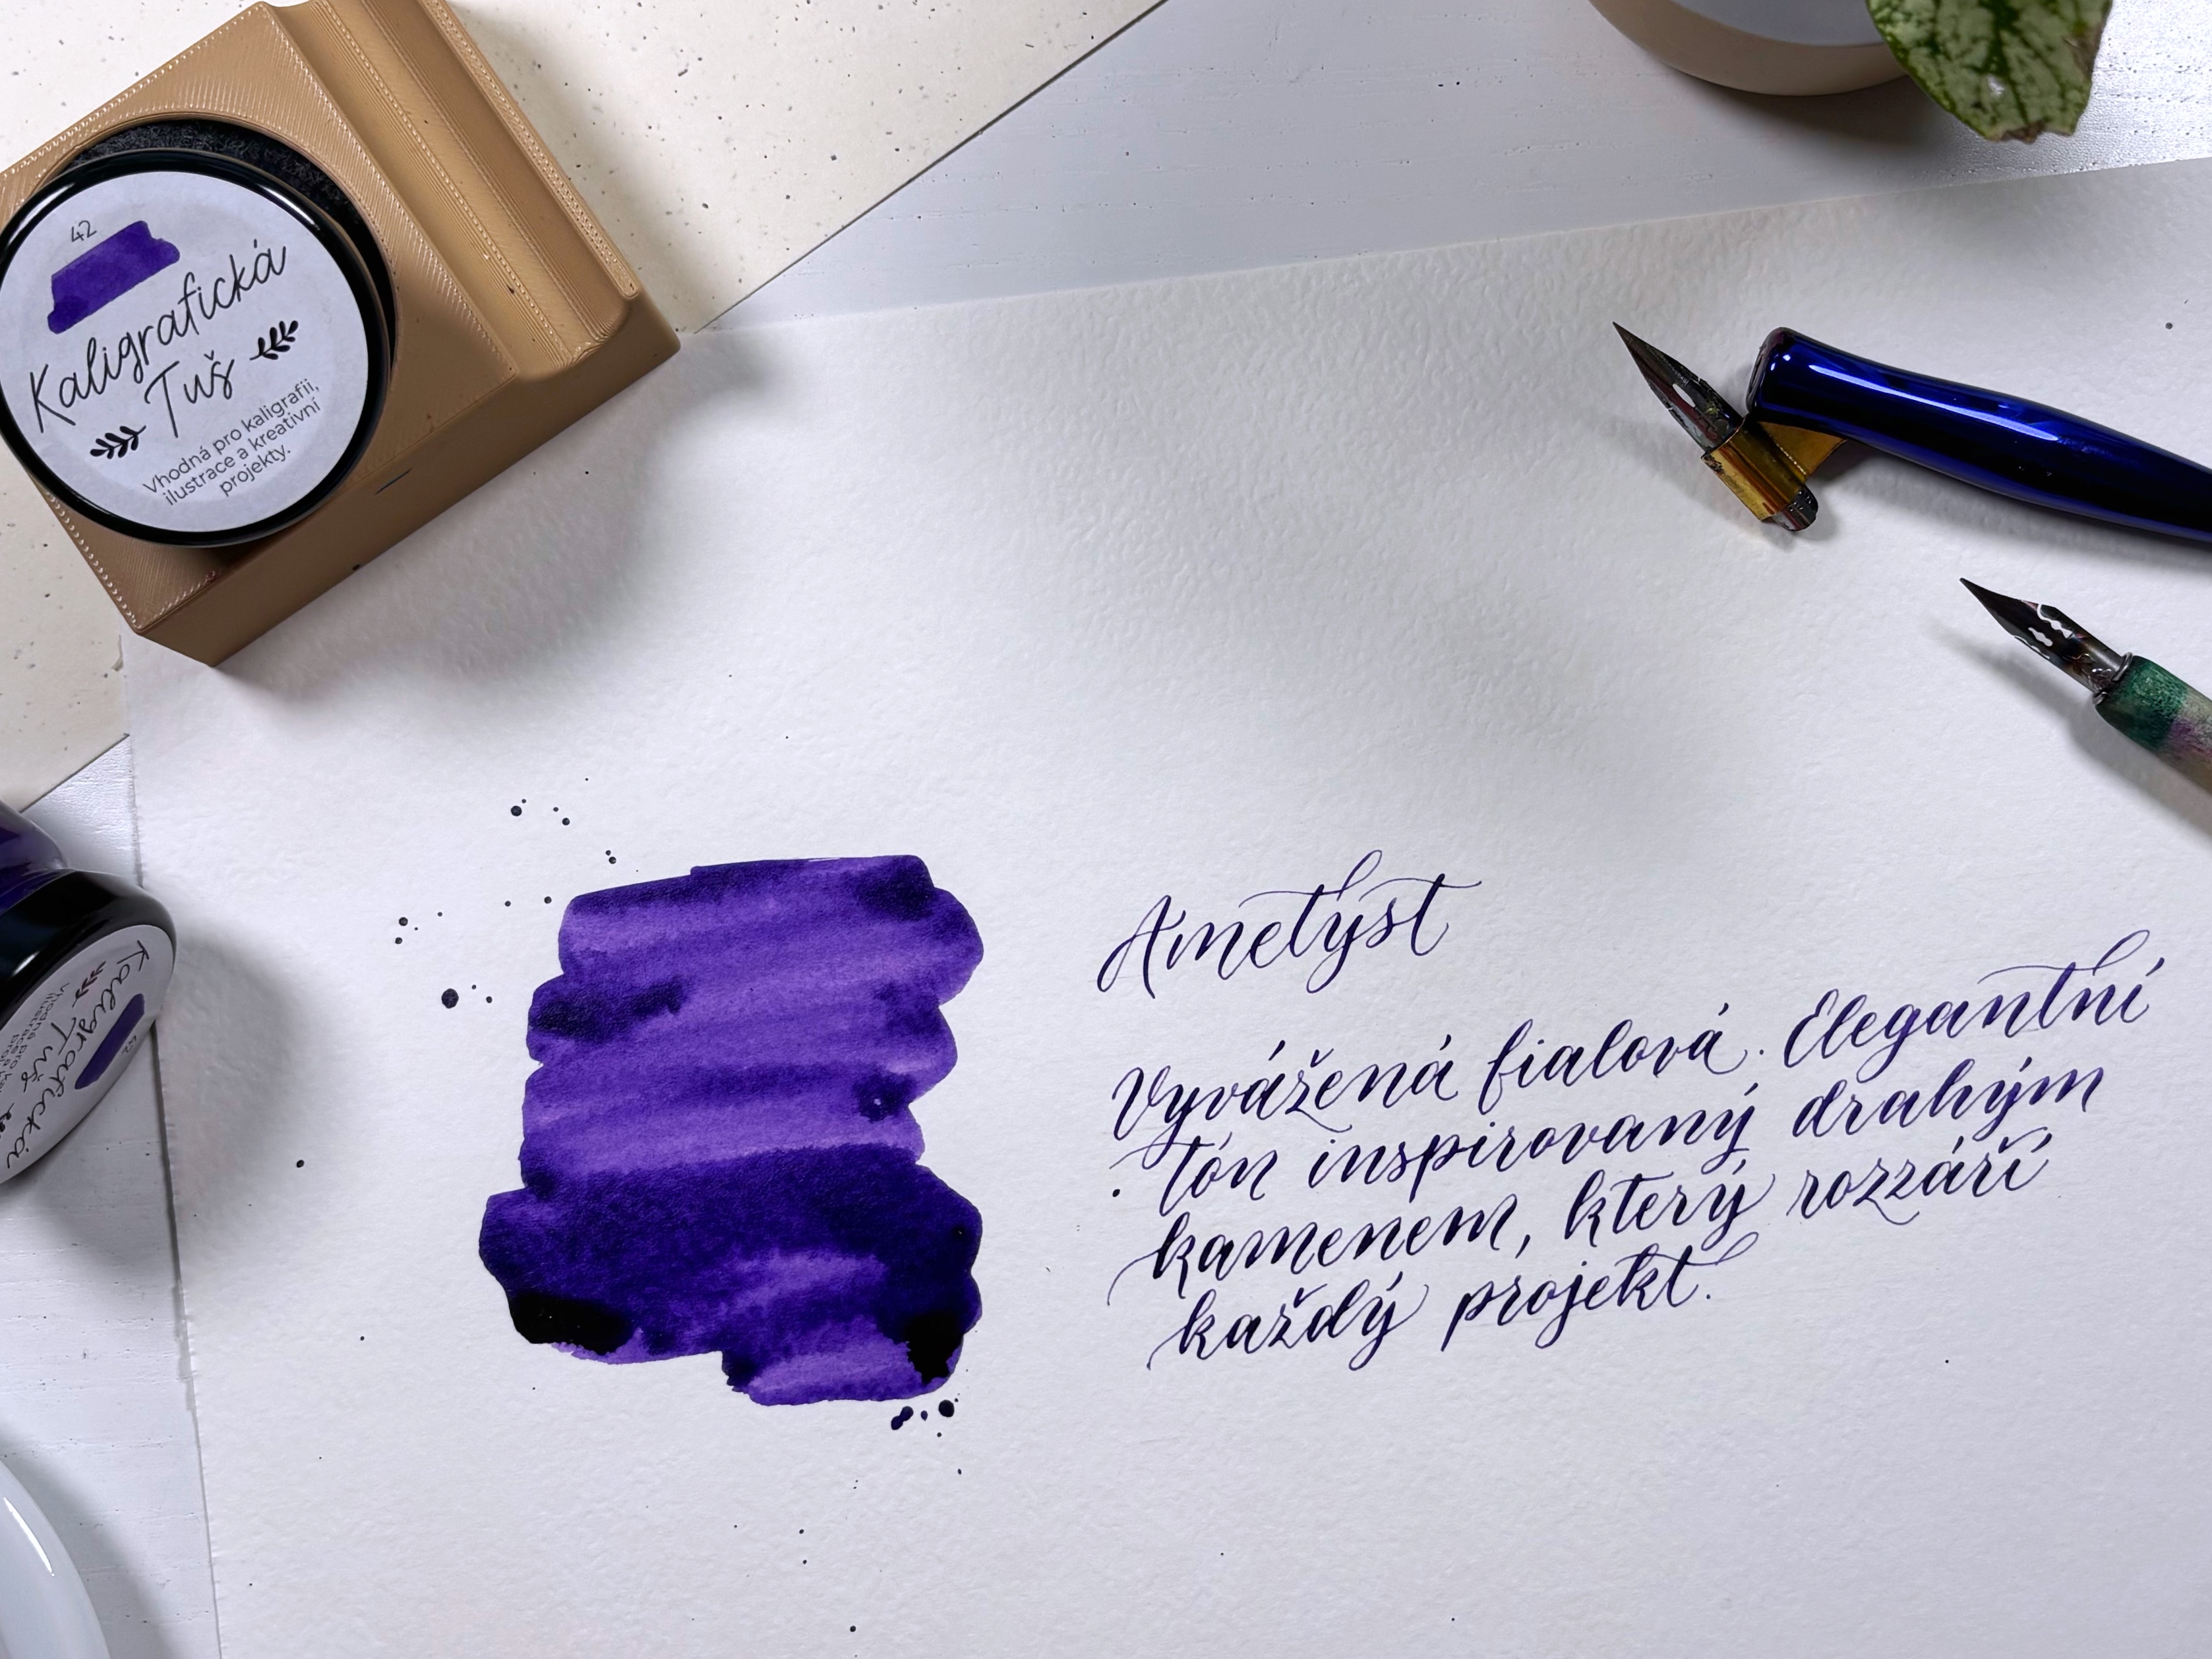 42
Kaligrafická
Tuš
Vhodná pro kaligrafii,
ilustrace a kreativní
projekty.
Ametyst
Vyvážená fialová. Elegantní
tón inspirovaný drahým
kamenem, který rozzáří
každý projekt.
42
Kaligrafická
Tuš